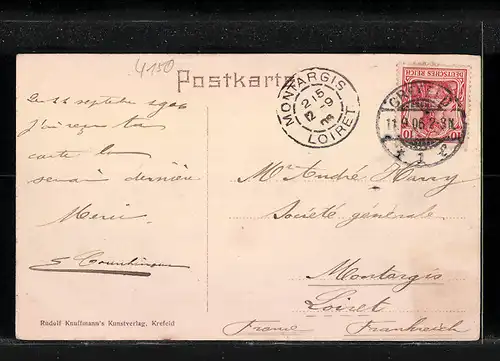 4150
Postkarte
MONTARGIS
215
12-9
06
LOIRET
DEUTSCHES REICH
10 10
CREFELD
11.9.06. 2-3N
* 1 e
Le 11 septembre 1906
J'ai reçu ta
carte la
semaine dernière
Merci
Mr André Harry
Société générale
Montargis
Loiret
France Frankreich
Rudolf Knuffmann's Kunstverlag, Krefeld